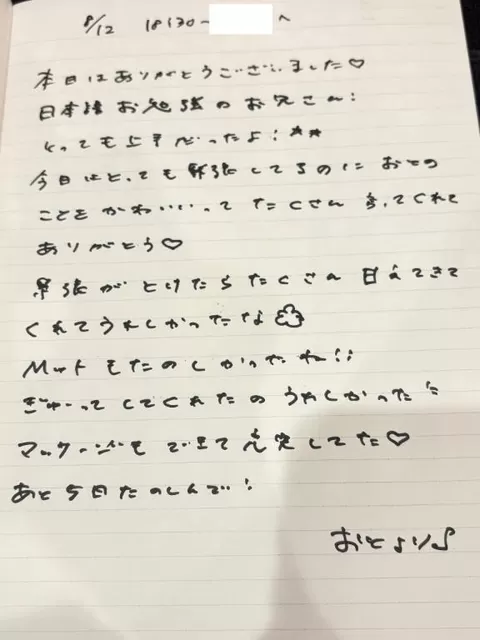 8/12 18:30~ へ
本日はありがとうございました♡
日本語お勉強のお兄さん!
とっても上手だったよ!★★
今日はとっても緊張してるのに おとの
ことを かわいいって たくさん 言ってくれて
ありがとう♡
緊張が とけたら たくさん 甘えてきて
くれて うれしかったな
Mット もたのしかったね!!
ぎゅーって してくれたの うれしかった
マッサージも できて してた♡
あと5日 たのしんで!
おとより♪